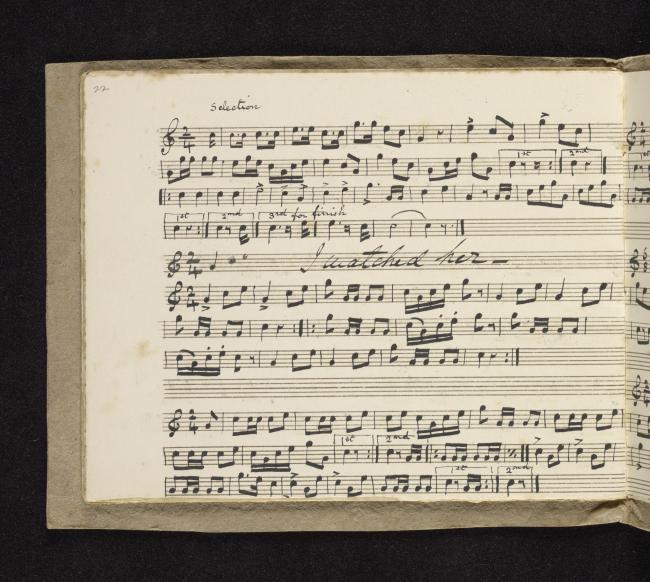 22
Selection
1st 2nd
1st 2nd 3rd for finish
I watched her —
1st 2nd
1st 2nd